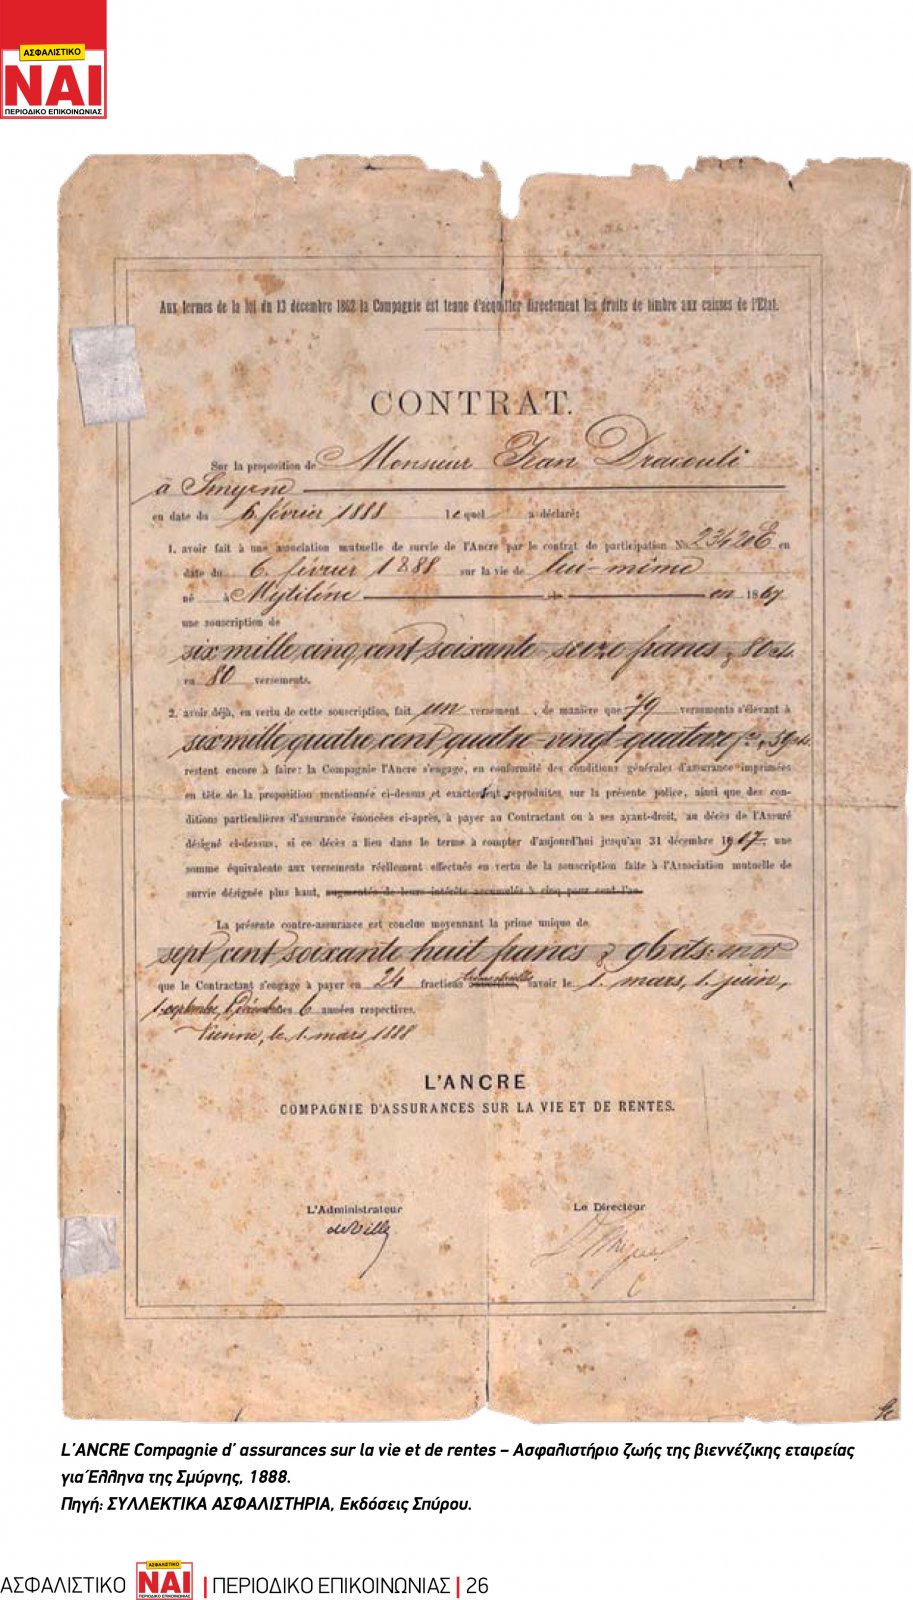 ΑΣΦΑΛΙΣΤΙΚΟ
ΝΑΙ
ΠΕΡΙΟΔΙΚΟ ΕΠΙΚΟΙΝΩΝΙΑΣ
Aux termes de la loi du 13 décembre 1862 la Compagnie est tenue d'acquitter directement les droits de timbre aux caisses de l'Etat.
CONTRAT.
Sur la proposition de Monsieur Jean Dracouli
à Smyrne
en date du 6. février 1888 lequel a déclaré:
1. avoir fait à une association mutuelle de survie de l'Ancre par le contrat de participation No. 23420E en
date du 6. février 1888 sur la vie de lui-même
né à Mytilène en 1867
une souscription de
six mille cinq cent soixante-seize francs, 80 cts.
en 80 versements.
2. avoir déjà, en vertu de cette souscription, fait un versement, de manière que 79 versements s'élevant à
six mille quatre cent quatre-vingt-quatorze
restent encore à faire: la Compagnie l'Ancre s'engage, en conformité des conditions générales d'assurance imprimées
en tête de la proposition mentionnée ci-dessus et exactement reproduites sur la présente police, ainsi que des con-
ditions particulières d'assurance énoncées ci-après, à payer au Contractant ou à ses ayant-droit, au décès de l'Assuré
désigné ci-dessus, si ce décès a lieu dans le terme à compter d'aujourd'hui jusqu'au 31 décembre 1907, une
somme équivalente aux versements réellement effectués en vertu de la souscription faite à l'Association mutuelle de
survie désignée plus haut, augmentés de leurs intérêts accumulés à cinq pour cent l'an.
La présente contre-assurance est conclue moyennant la prime unique de
sept cent soixante huit francs & 96 cts: en or
que le Contractant s'engage à payer en 24 fractions trimestrielles savoir le 1. mars, 1. juin,
1. septembre, 1. décembre des 6 années respectives.
Vienne, le 1. mars 1888
L'ANCRE
COMPAGNIE D'ASSURANCES SUR LA VIE ET DE RENTES.
L'Administrateur Le Directeur
L'ANCRE Compagnie d' assurances sur la vie et de rentes – Ασφαλιστήριο ζωής της βιεννέζικης εταιρείας
για Έλληνα της Σμύρνης, 1888.
Πηγή: ΣΥΛΛΕΚΤΙΚΑ ΑΣΦΑΛΙΣΤΗΡΙΑ, Εκδόσεις Σπύρου.
ΑΣΦΑΛΙΣΤΙΚΟ ΑΣΦΑΛΙΣΤΙΚΟ ΝΑΙ ΠΕΡΙΟΔΙΚΟ ΕΠΙΚΟΙΝΩΝΙΑΣ | ΠΕΡΙΟΔΙΚΟ ΕΠΙΚΟΙΝΩΝΙΑΣ | 26